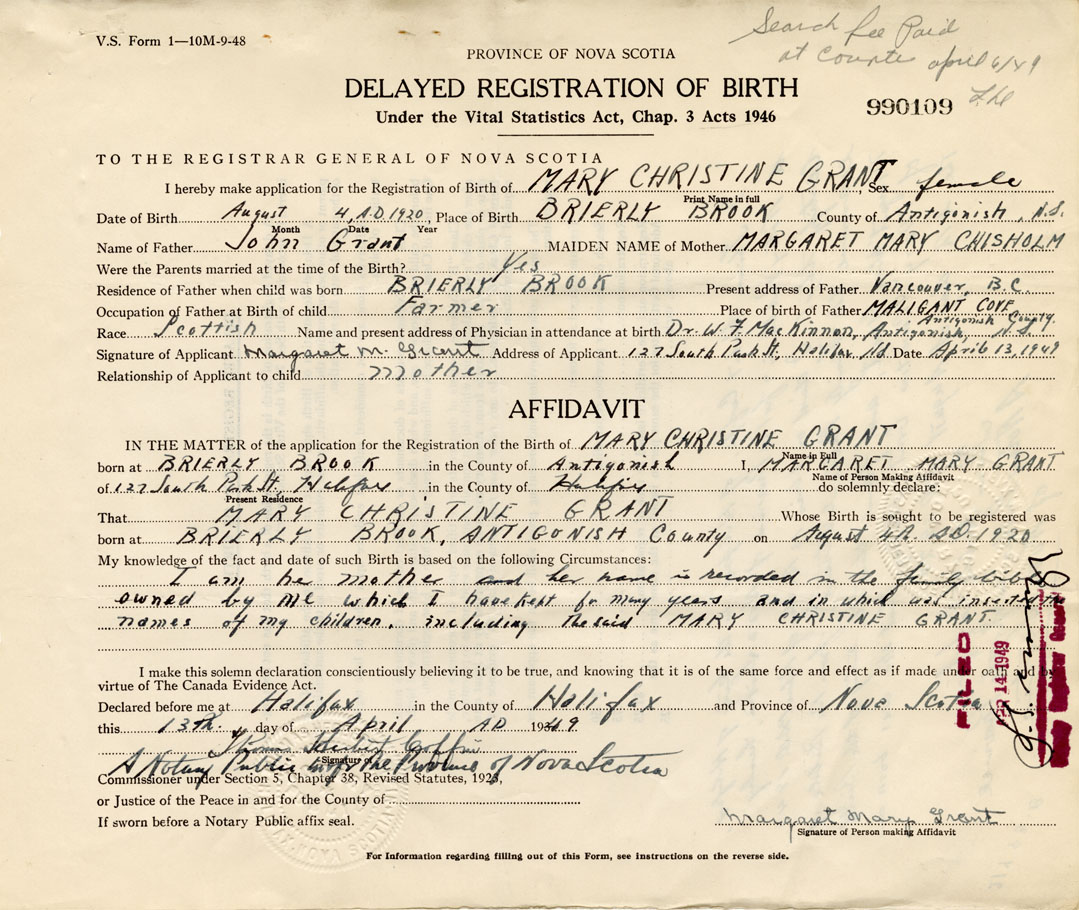 V.S. Form 1—10M-9-48
Search fee Paid
at Counter april 6/49
PROVINCE OF NOVA SCOTIA
DELAYED REGISTRATION OF BIRTH
990109
Under the Vital Statistics Act, Chap. 3 Acts 1946
TO THE REGISTRAR GENERAL OF NOVA SCOTIA
I hereby make application for the Registration of Birth of MARY CHRISTINE GRANT Sex female
Print Name in full
Date of Birth August 4, A.D. 1920, Place of Birth BRIERLY BROOK County of Antigonish, N.S.
Month Date Year
Name of Father John Grant MAIDEN NAME of Mother MARGARET MARY CHISHOLM
Were the Parents married at the time of the Birth? Yes
Residence of Father when child was born BRIERLY BROOK Present address of Father Vancouver, B.C
Occupation of Father at Birth of child Farmer Place of birth of Father MALIGANT COVE
Antigonish County
Race Scottish Name and present address of Physician in attendance at birth Dr. W. F. MacKinnon, Antigonish, N.S.
Signature of Applicant Margaret M. Grant Address of Applicant 127 South Park St, Halifax, Date April 13, 1949
Relationship of Applicant to child mother
AFFIDAVIT
IN THE MATTER of the application for the Registration of the Birth of MARY CHRISTINE GRANT
Name in Full
born at BRIERLY BROOK in the County of Antigonish I, MARGARET MARY GRANT
Name of Person Making Affidavit
of 127 South Park St., Halifax in the County of Halifax do solemnly declare:
Present Residence
That MARY CHRISTINE GRANT Whose Birth is sought to be registered was
born at BRIERLY BROOK, ANTIGONISH County on August 4th A.D. 1920
My knowledge of the fact and date of such Birth is based on the following Circumstances:
I am her mother and her name is recorded in the family bible
owned by me which I have kept for many years and in which was inserted the
names of my children, including the said MARY CHRISTINE GRANT.
I make this solemn declaration conscientiously believing it to be true, and knowing that it is of the same force and effect as if made under oath and by
virtue of The Canada Evidence Act.
Declared before me at Halifax in the County of Halifax and Province of Nova Scotia
this 13th day of April A.D. 1949
Thomas Herbert Coffin
Signature of
A Notary Public in & for the Province of Nova Scotia
Commissioner under Section 5, Chapter 38, Revised Statutes, 1923,
or Justice of the Peace in and for the County of
If sworn before a Notary Public affix seal.
Margaret Mary Grant
Signature of Person making Affidavit
For Information regarding filling out of this Form, see instructions on the reverse side.
FILED
14 1949